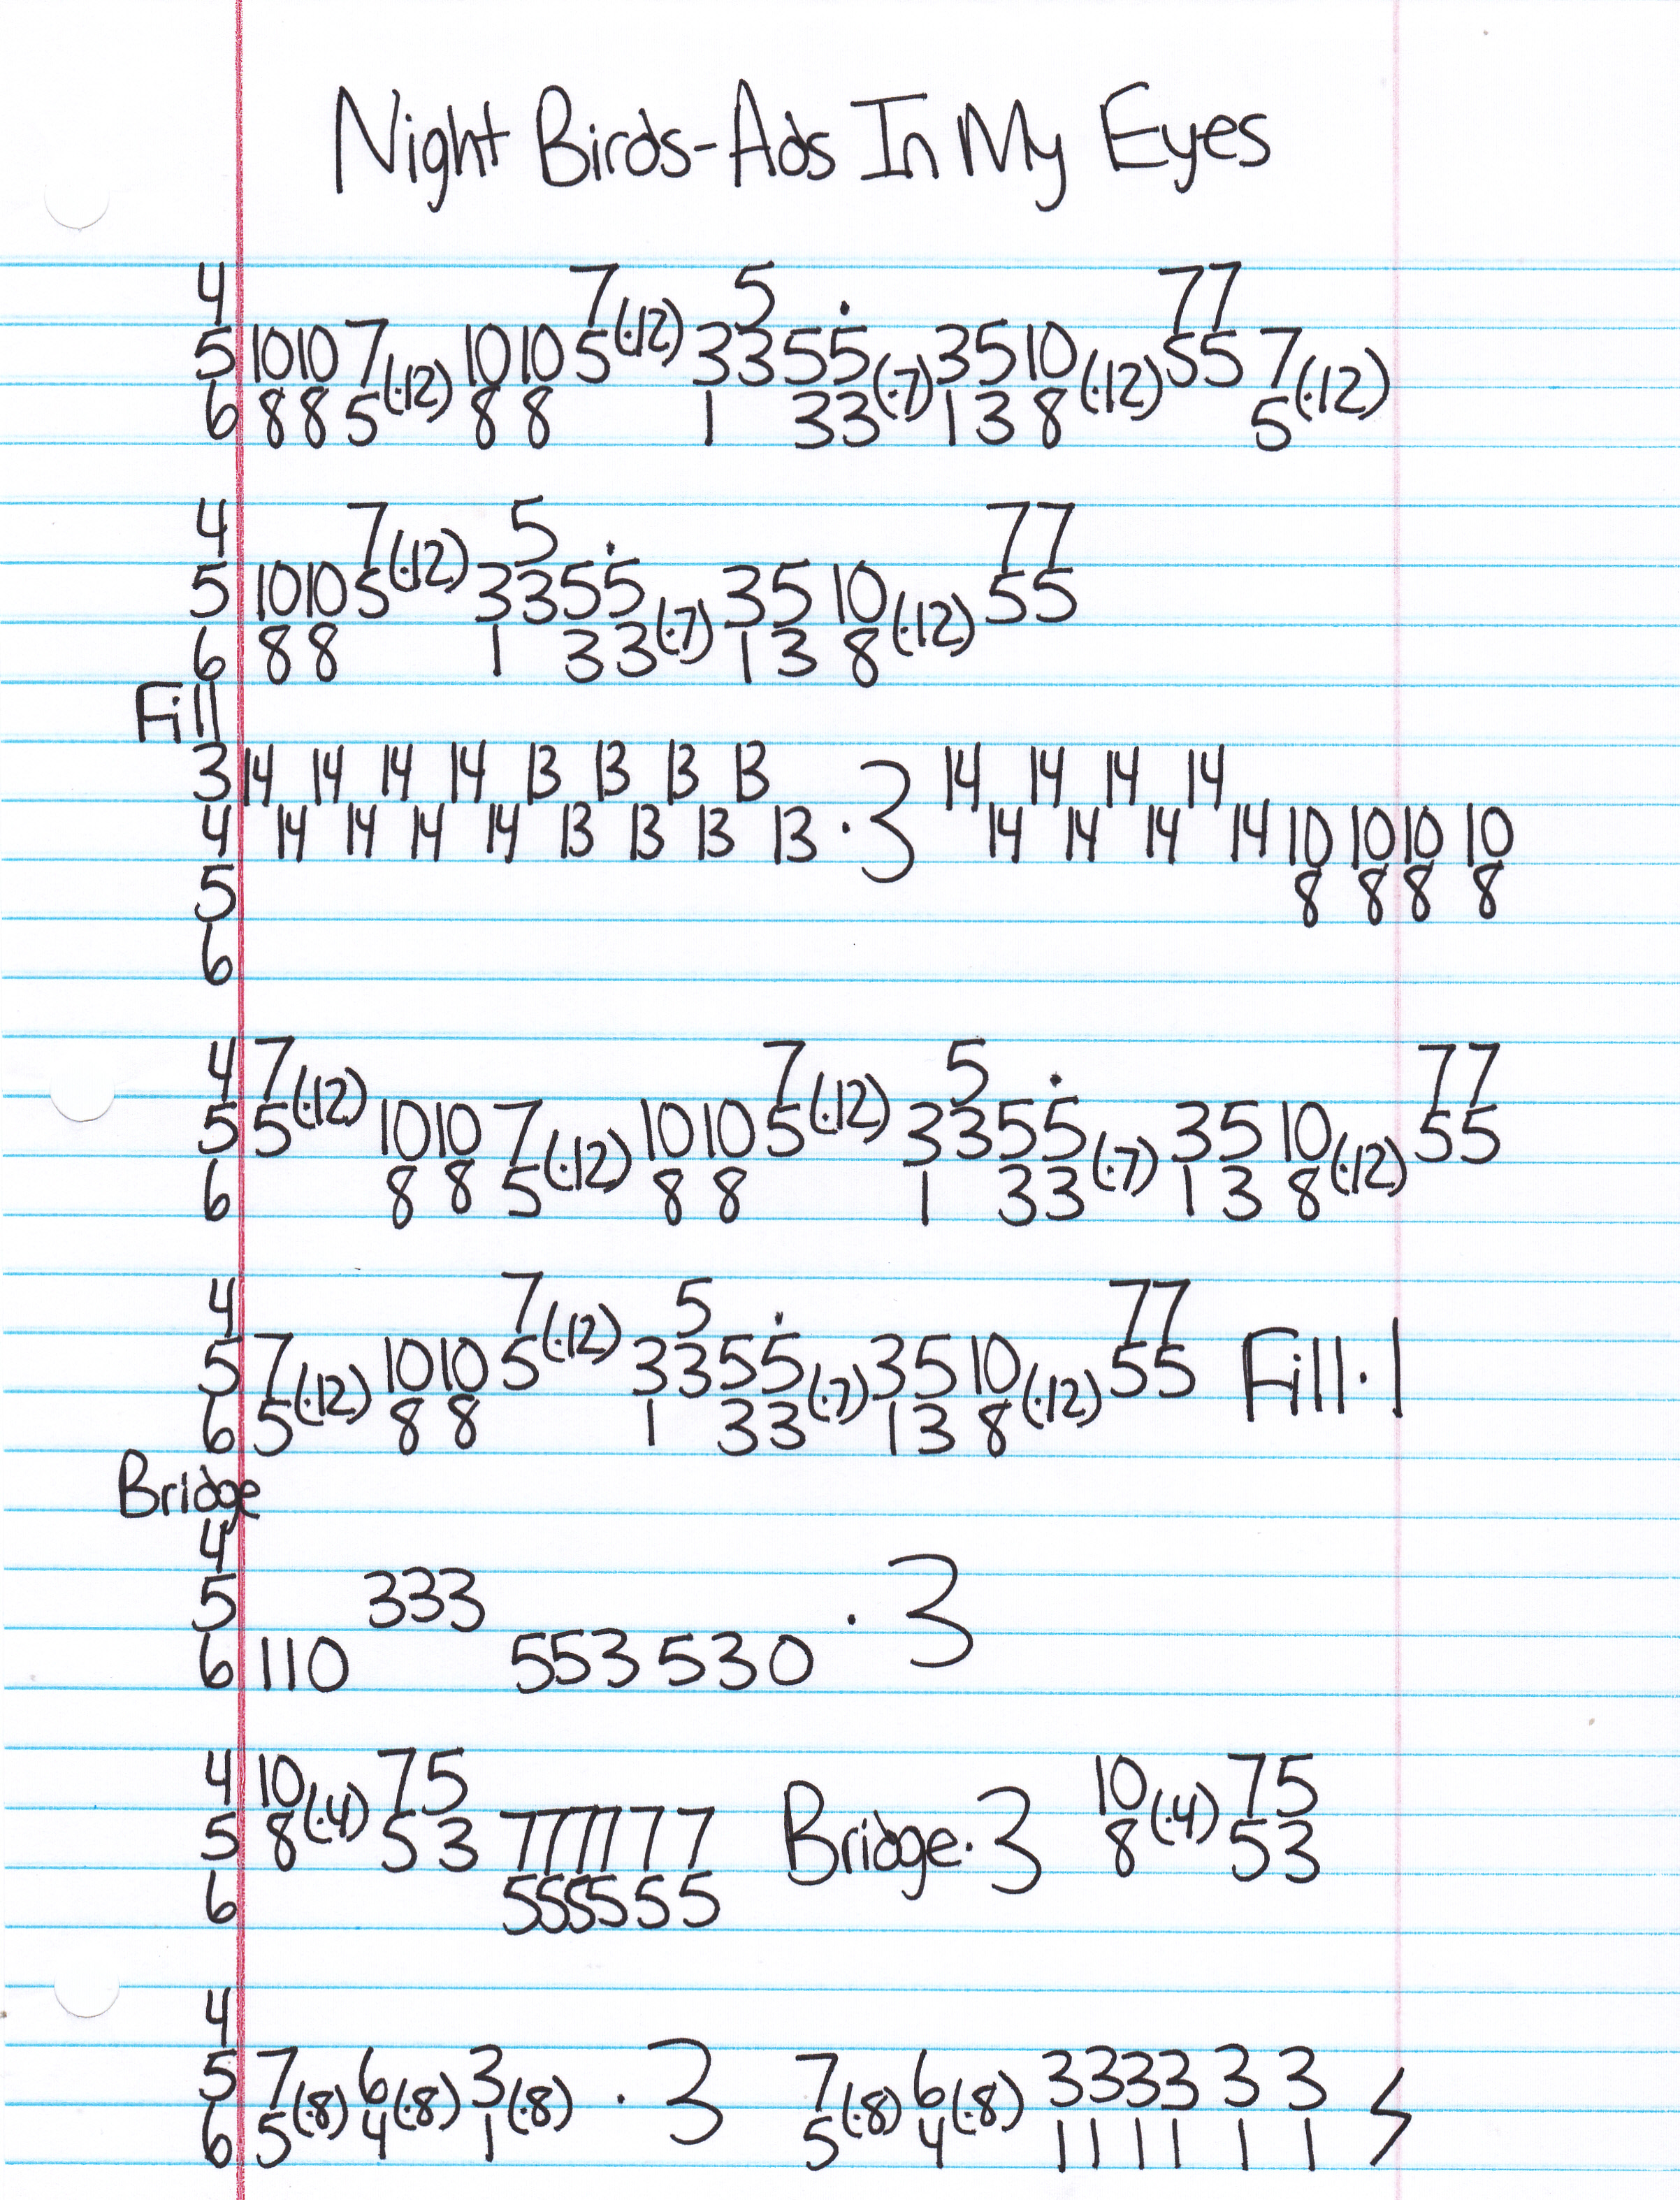 Night Birds-Ads In My Eyes
4 7(·12) 5 · 77
5 10 10 7(·12) 10 10 5 3 3 5 5(·7) 3 5 10(·12) 5 5 7(·12)
6 8 8 5 8 8 1 3 3 1 3 8 5
4 7(·12) 5 · 77
5 10 10 5 3 3 5 5(·7) 3 5 10(·12) 5 5
6 8 8 1 3 3 1 3 8
Fill
3 14 14 14 14 13 13 13 13 ·3 14 14 14 14
4 14 14 14 14 13 13 13 13 14 14 14 14 10 10 10 10
5 8 8 8 8
6
4 7(·12) 7(·12) 5 · 77
5 5 10 10 7(·12) 10 10 5 3 3 5 5(·7) 3 5 10(·12) 5 5
6 8 8 5 8 8 1 3 3 1 3 8
4 7(·12) 5 · 77
5 7(·12) 10 10 5 3 3 5 5(·7) 3 5 10(·12) 5 5 Fill·1
6 5 8 8 1 3 3 1 3 8
Bridge
4
5 333 ·3
6 110 553 530
4 10(·4) 75 Bridge·3 10(·4) 75
5 8 5 3 777777 8 5 3
6 555555
4
5 7(·8) 6(·8) 3(·8) ·3 7(·8) 6(·8) 3333 3 3
6 5 4 1 5 4 1111 1 1